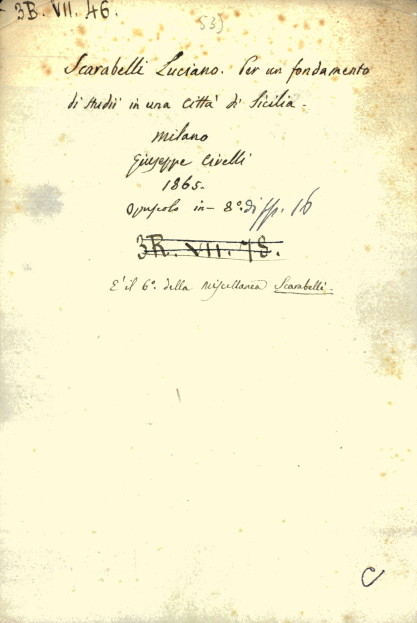 3B. VII. 46.
53)
Scarabelli Luciano. Per un fondamento
di studii in una Città di Sicilia.
Milano
Giuseppe Civelli
1865.
Opuscolo in-8° di pp. 16
3R. VII. 78.
È il 6°. della Miscellanea Scarabelli.
C